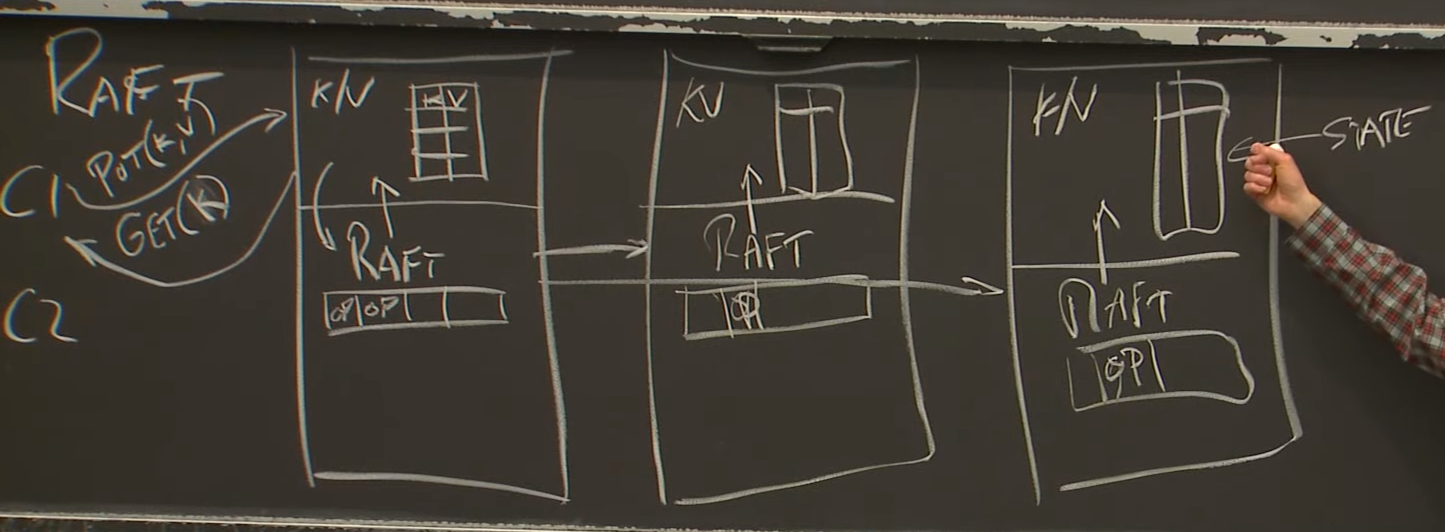 RAFT
PUT(K,V)
C1
GET(K)
C2
K/V
K V
RAFT
OP OP
KV
RAFT
OP
K/V
STATE
RAFT
OP